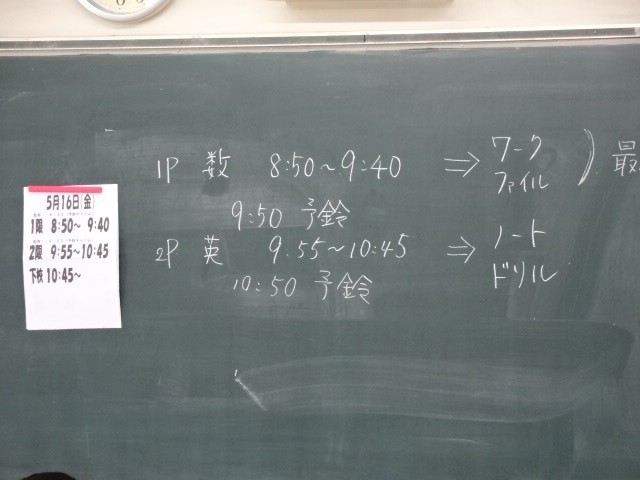 5月16日(金)
1限 8:50~ 9:40
2限 9:55~10:45
下校 10:45~
1P 数 8:50~9:40 ⇒ ワーク
ファイル
) 最
9:50 予鈴
2P 英 9.55~10:45 ⇒ ノート
ドリル
10:50 予鈴